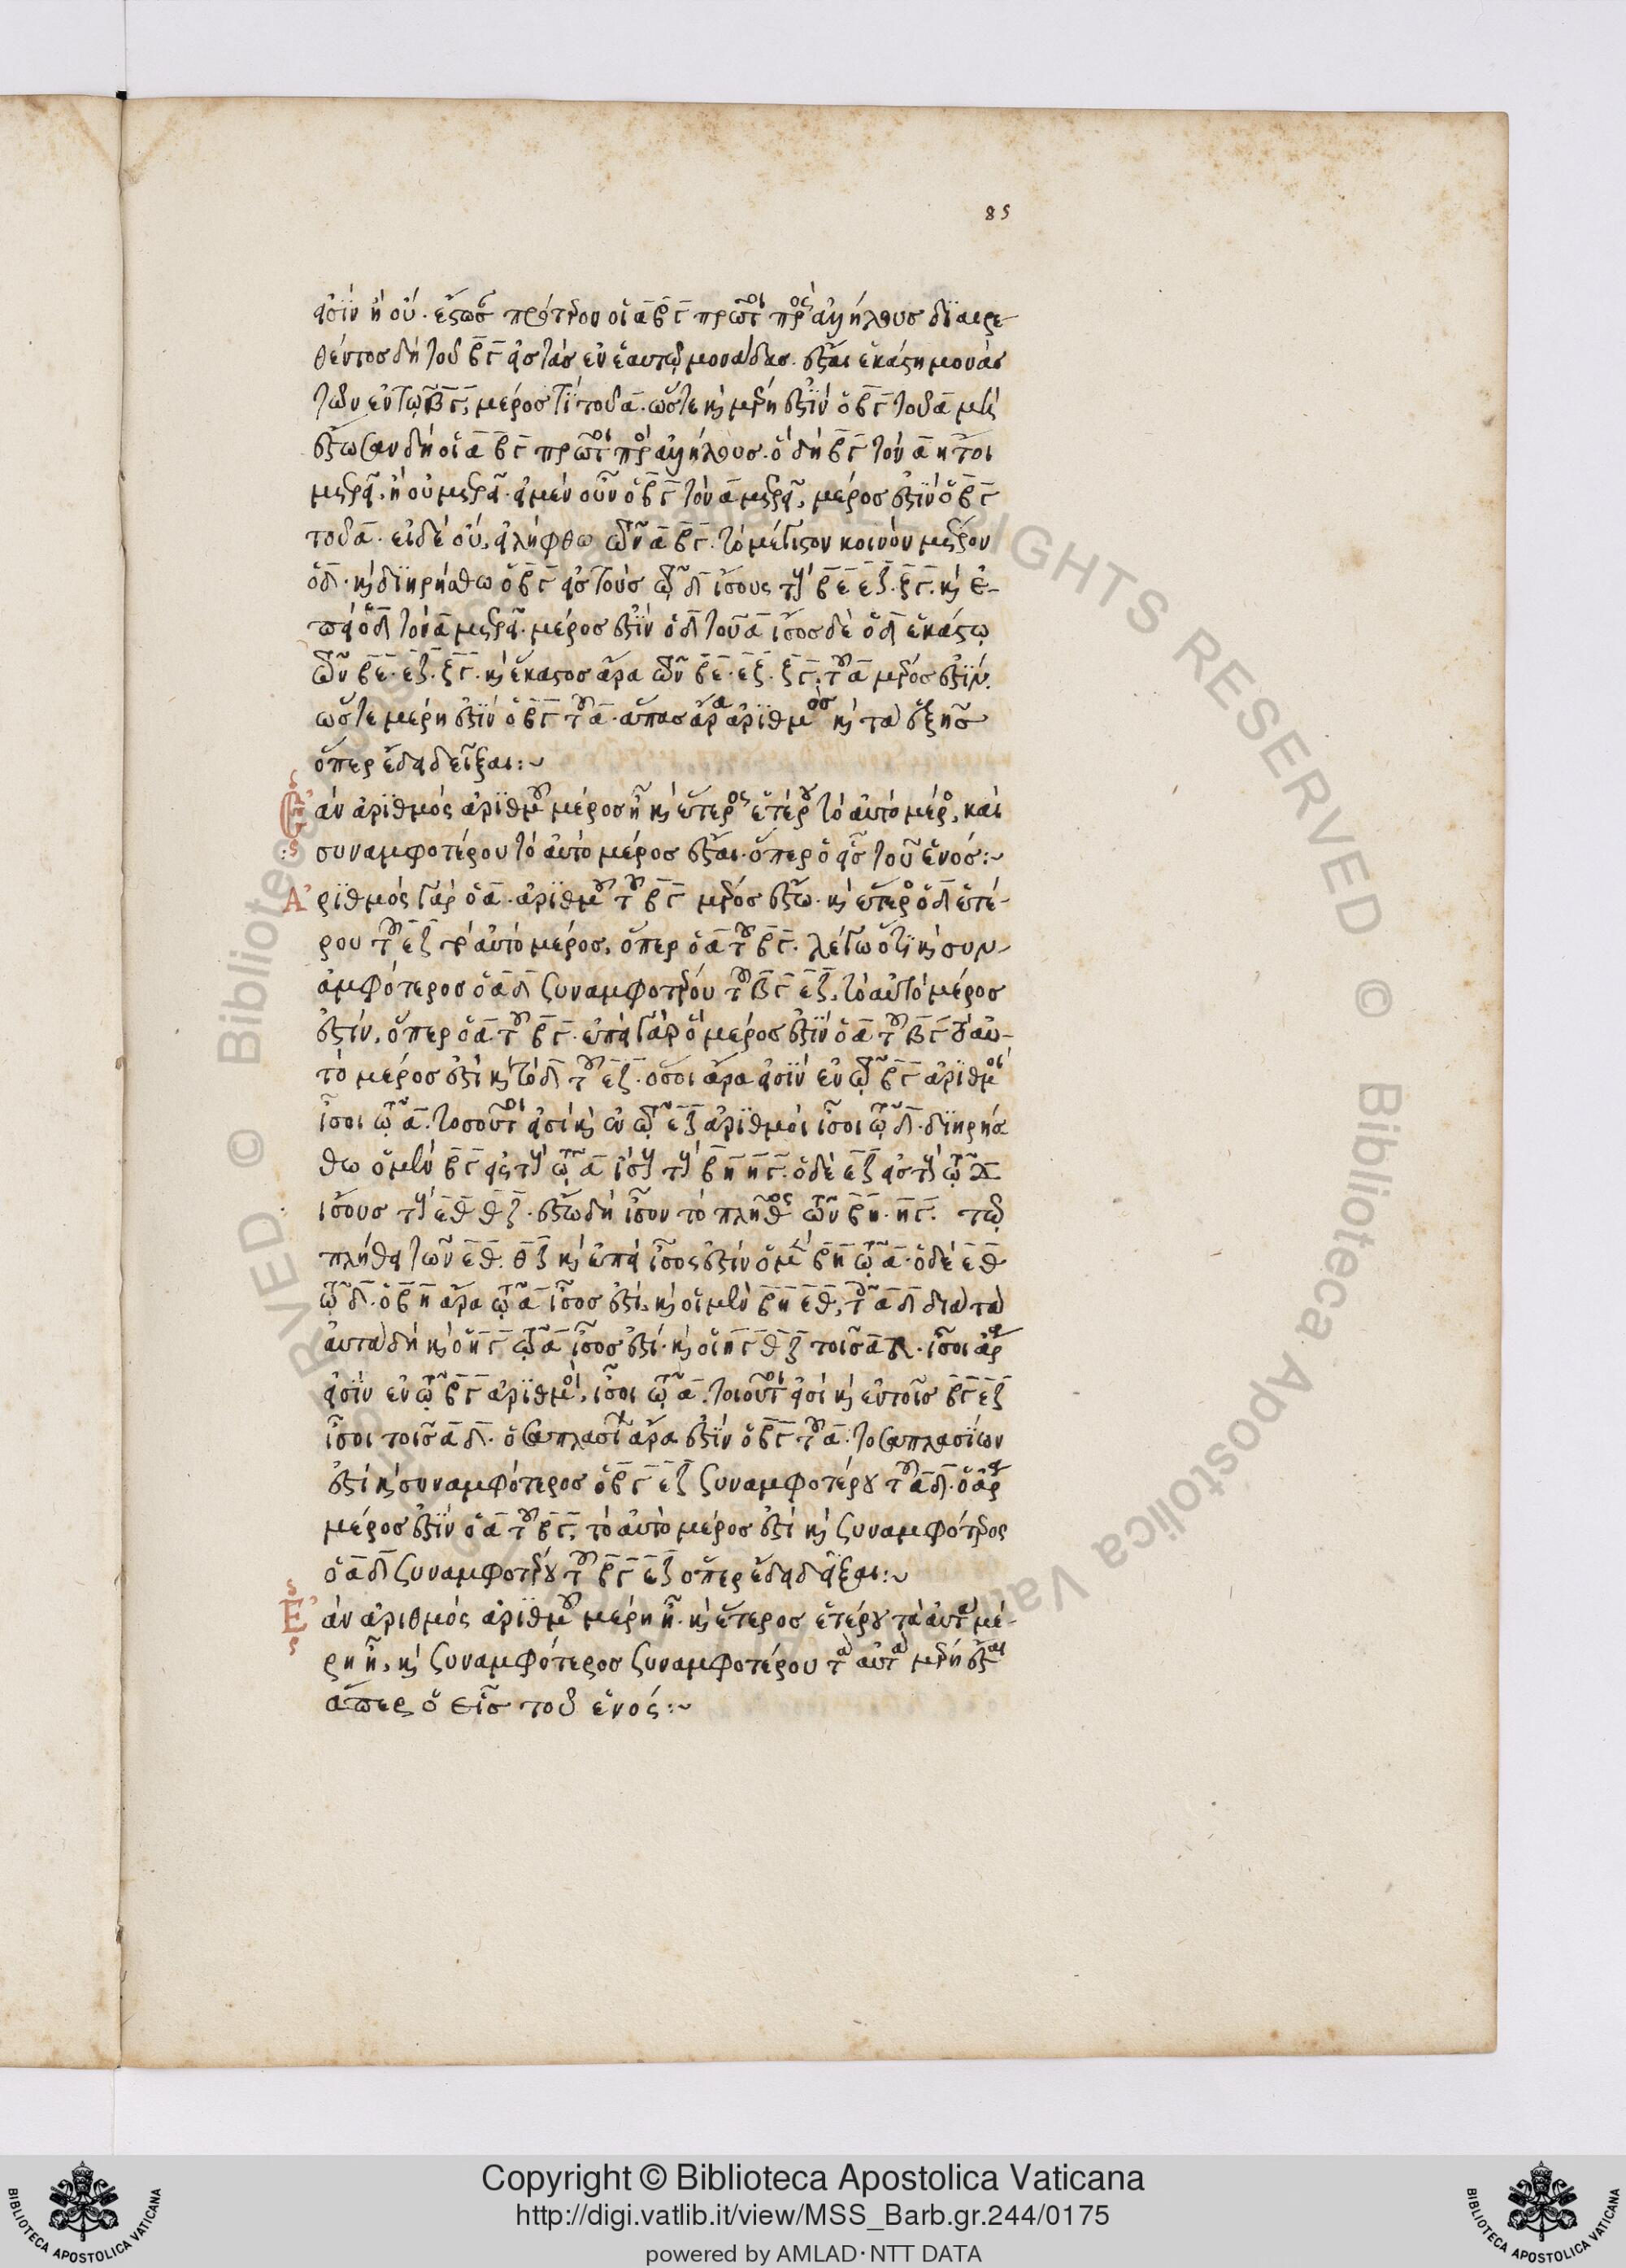 85
εἰσὶν ἢ οὔ. ἔστωσαν πρότερον οἱ α βγ πρῶτοι πρὸς ἀλλήλους διαιρε
θέντος δὴ τοῦ βγ εἰς τὰς ἐν ἑαυτῷ μονάδας. ἔσται ἑκάστη μονὰς
τῶν ἐν τῷ βγ, μέρος τι τοῦ α. ὥστε καὶ μέρη ἐστὶν ὁ βγ τοῦ α μὴ
ἔστωσαν δὴ οἱ α βγ πρῶτοι πρὸς ἀλλήλους. ὁ δὴ βγ τὸν α ἤτοι
μετρεῖ, ἢ οὐ μετρεῖ. εἰ μὲν οὖν ὁ βγ τὸν α μετρεῖ, μέρος ἐστὶν ὁ βγ
τοῦ α. εἰ δὲ οὔ, εἰλήφθω τῶν α βγ. τὸ μέγιστον κοινὸν μέτρον
ὁ δ. καὶ διῃρήσθω ὁ βγ εἰς τοὺς τῷ δ ἴσους τοὺς βε εζ. ζγ. καὶ ἐ-
πεὶ ὁ δ τὸν α μετρεῖ. μέρος ἐστὶν ὁ δ τοῦ α ἴσος δὲ ὁ δ ἑκάστῳ
τῶν βε. εζ. ζγ. καὶ ἕκαστος ἄρα τῶν βε. εζ. ζγ. τοῦ α μέρος ἐστίν.
ὥστε μέρη ἐστὶν ὁ βγ τοῦ α. ἅπας ἄρα ἀριθμὸς καὶ τὰ ἑξῆς
ὅπερ ἔδει δεῖξαι:~
Ἐὰν ἀριθμὸς ἀριθμοῦ μέρος ᾖ καὶ ἕτερος ἑτέρου τὸ αὐτὸ μέρος, καὶ
συναμφοτέρου τὸ αὐτὸ μέρος ἔσται. ὅπερ ὁ εἷς τοῦ ἑνός:~
Ἀριθμὸς γὰρ ὁ α. ἀριθμοῦ τοῦ βγ μέρος ἔστω. καὶ ἕτερος ὁ δ ἑτέ-
ρου τοῦ εζ τὸ αὐτὸ μέρος, ὅπερ ὁ α τοῦ βγ. λέγω ὅτι καὶ συν
αμφότερος ὁ α δ συναμφοτέρου τοῦ βγ εζ, τὸ αὐτὸ μέρος
ἐστίν, ὅπερ ὁ α τοῦ βγ. ἐπεὶ γὰρ ὃ μέρος ἐστὶν ὁ α τοῦ βγ τὸ αὐ-
τὸ μέρος ἐστὶ καὶ τὸ δ τοῦ εζ. ὅσοι ἄρα εἰσὶν ἐν τῷ βγ ἀριθμοὶ
ἴσοι τῷ α. τοσοῦτοι εἰσὶ καὶ ἐν τῷ εζ ἀριθμοὶ ἴσοι τῷ δ. διῃρήσ
θω ὁ μὲν βγ εἰς τοὺς τῷ α ἴσους τοὺς βη ηγ. ὁ δὲ εζ εἰς τοὺς τῷ δ
ἴσους τοὺς εθ θζ. ἔσται δὴ ἴσον τὸ πλῆθος τῶν βη. ηγ. τῷ
πλήθει τῶν εθ. θζ καὶ ἐπεὶ ἴσος ἐστὶν ὁ μὲν βη τῷ α. ὁ δὲ εθ
τῷ δ. ὁ βη ἄρα τῷ α ἴσος ἐστί, καὶ οἱ μὲν βη εθ, τοῖς α δ διὰ τὰ
αὐτὰ δὴ καὶ ὁ ηγ τῷ α ἴσος ἐστί. καὶ οἱ ηγ θζ τοῖς α δ. ἴσοι ἄρα
εἰσὶν ἐν τῷ βγ ἀριθμοὶ, ἴσοι τῷ α. τοιοῦτοι εἰσὶ καὶ ἐν τοῖς βγ εζ
ἴσοι τοῖς α δ. ὁσαπλασίων ἄρα ἐστὶν ὁ βγ τοῦ α. τοσαπλασίων
ἐστὶ καὶ συναμφότερος ὁ βγ εζ συναμφοτέρου τοῦ α δ. ὃ ἄρα
μέρος ἐστὶν ὁ α τοῦ βγ, τὸ αὐτὸ μέρος ἐστὶ καὶ συναμφότερος
ὁ α δ συναμφοτέρου τοῦ βγ εζ ὅπερ ἔδει δεῖξαι:~
Ἐὰν ἀριθμὸς ἀριθμοῦ μέρη ᾖ. καὶ ἕτερος ἑτέρου τὰ αὐτὰ μέ-
ρη ᾖ, καὶ συναμφότερος συναμφοτέρου τὰ αὐτὰ μέρη ἔσται
ἅπερ ὁ εἷς τοῦ ἑνός:~
Copyright © Biblioteca Apostolica Vaticana
http://digi.vatlib.it/view/MSS_Barb.gr.244/0175
powered by AMLAD·NTT DATA